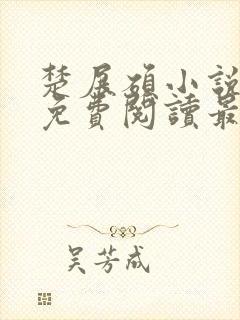 楚展碩小說
免費閱讀最
吴芳成